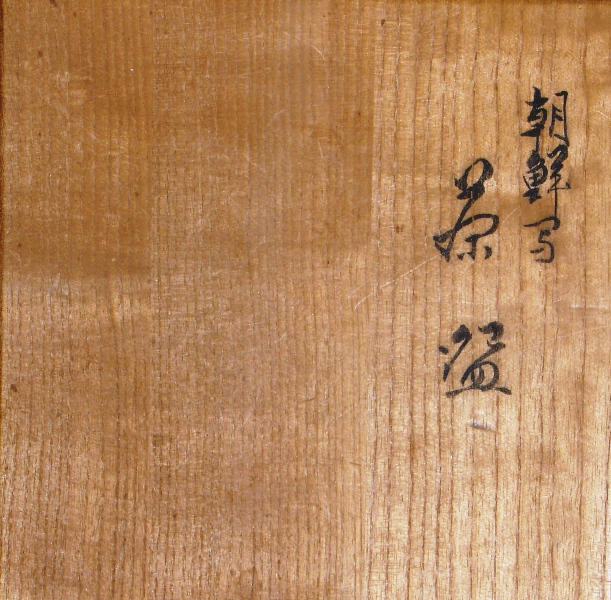 朝鮮写
茶盌